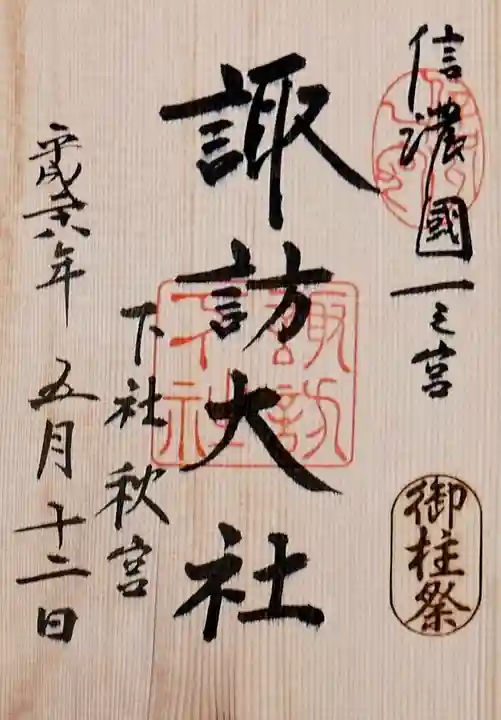 信濃國一之宮
御柱祭
諏訪大社
諏訪
下社
下社秋宮
平成廿八年 五月十二日